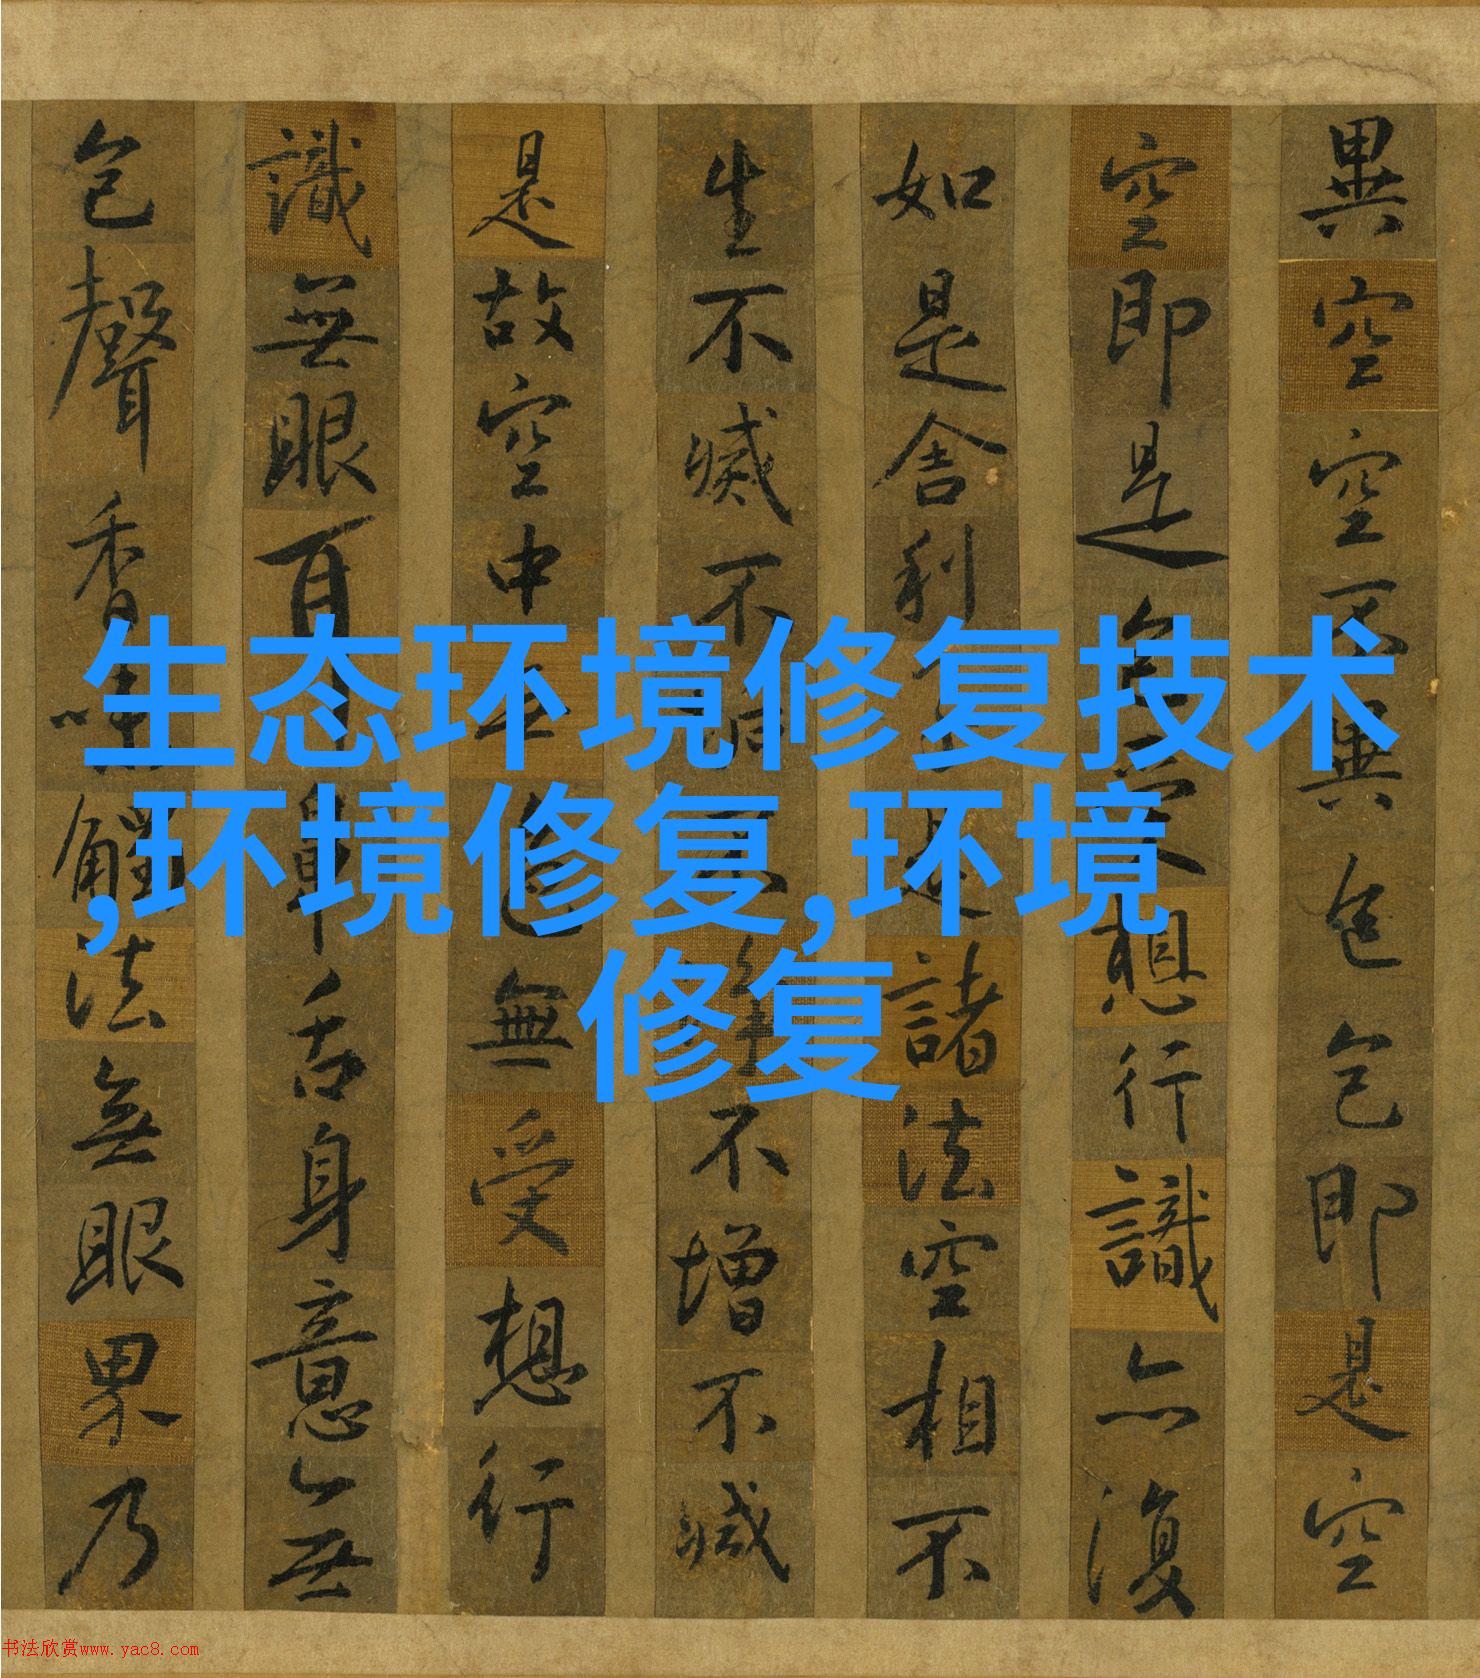 異空空不異色色即是空
空即是色受想行識亦復
如是舍利是諸法空相不
生不滅不垢不淨不增不減
是故空中无色無受想行
識無眼耳鼻舌身意无
色聲香味觸法無眼界乃
生态环境修复技术
,环境修复,环境
修复
书法欣赏www.yac8.com